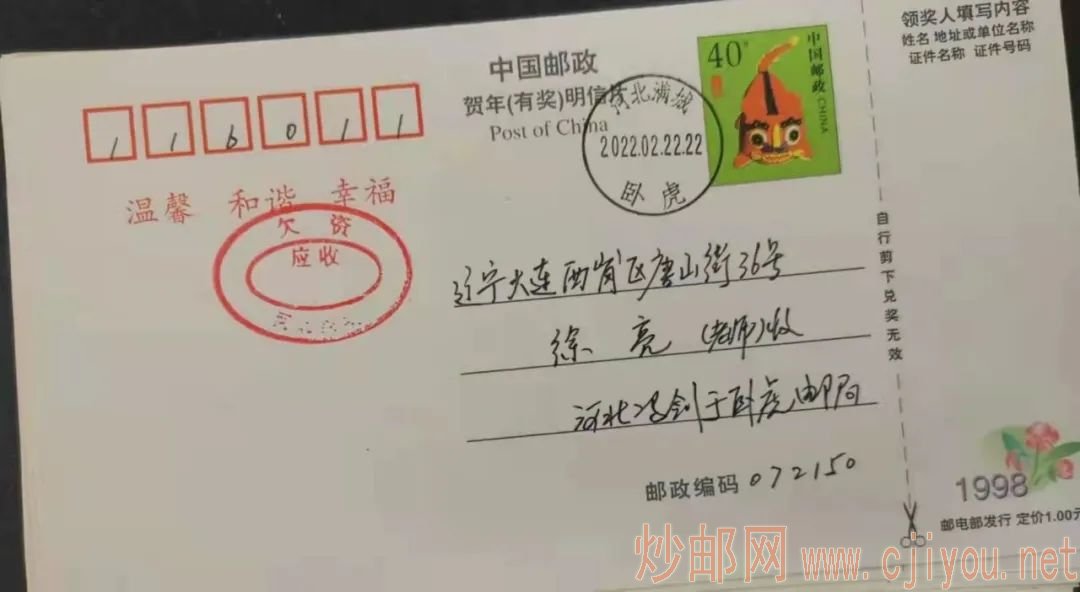 中国邮政
贺年(有奖)明信片
Post of China
40分
中国邮政 CHINA
河北满城
2022.02.22.22
卧虎
116011
温馨 和谐 幸福
欠资
应收
辽宁大连西岗区唐山街36号
徐亮(老师)收
河北冯剑于卧虎邮局
邮政编码 072150
领奖人填写内容
姓名 地址或单位名称
证件名称 证件号码
自行剪下兑奖无效
1998
邮电部发行 定价1.00元
炒邮网 www.cjiyou.net